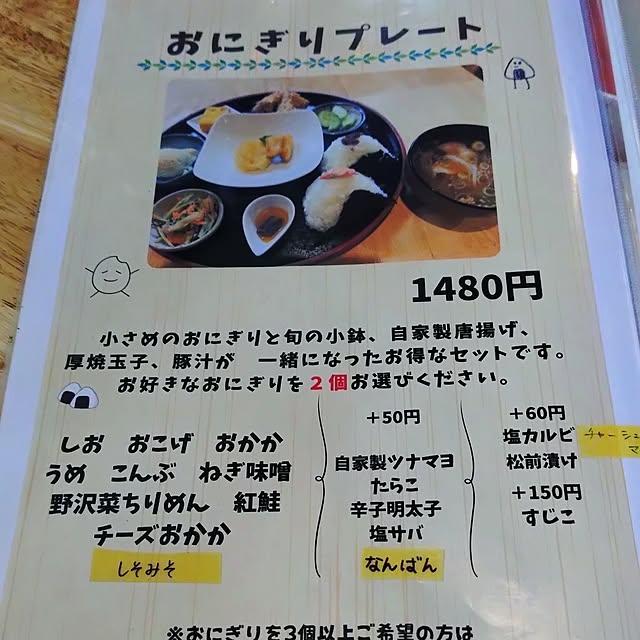 おにぎりプレート
1480円
小さめのおにぎりと旬の小鉢、自家製唐揚げ、
厚焼玉子、豚汁が 一緒になったお得なセットです。
お好きなおにぎりを2個お選びください。
しお おこげ おかか
うめ こんぶ ねぎ味噌
野沢菜ちりめん 紅鮭
チーズおかか
しそみそ
+50円
自家製ツナマヨ
たらこ
辛子明太子
塩サバ
なんばん
+60円
塩カルビ
チャーシュ
マ
松前漬け
+150円
すじこ
※おにぎりを3個以上ご希望の方は